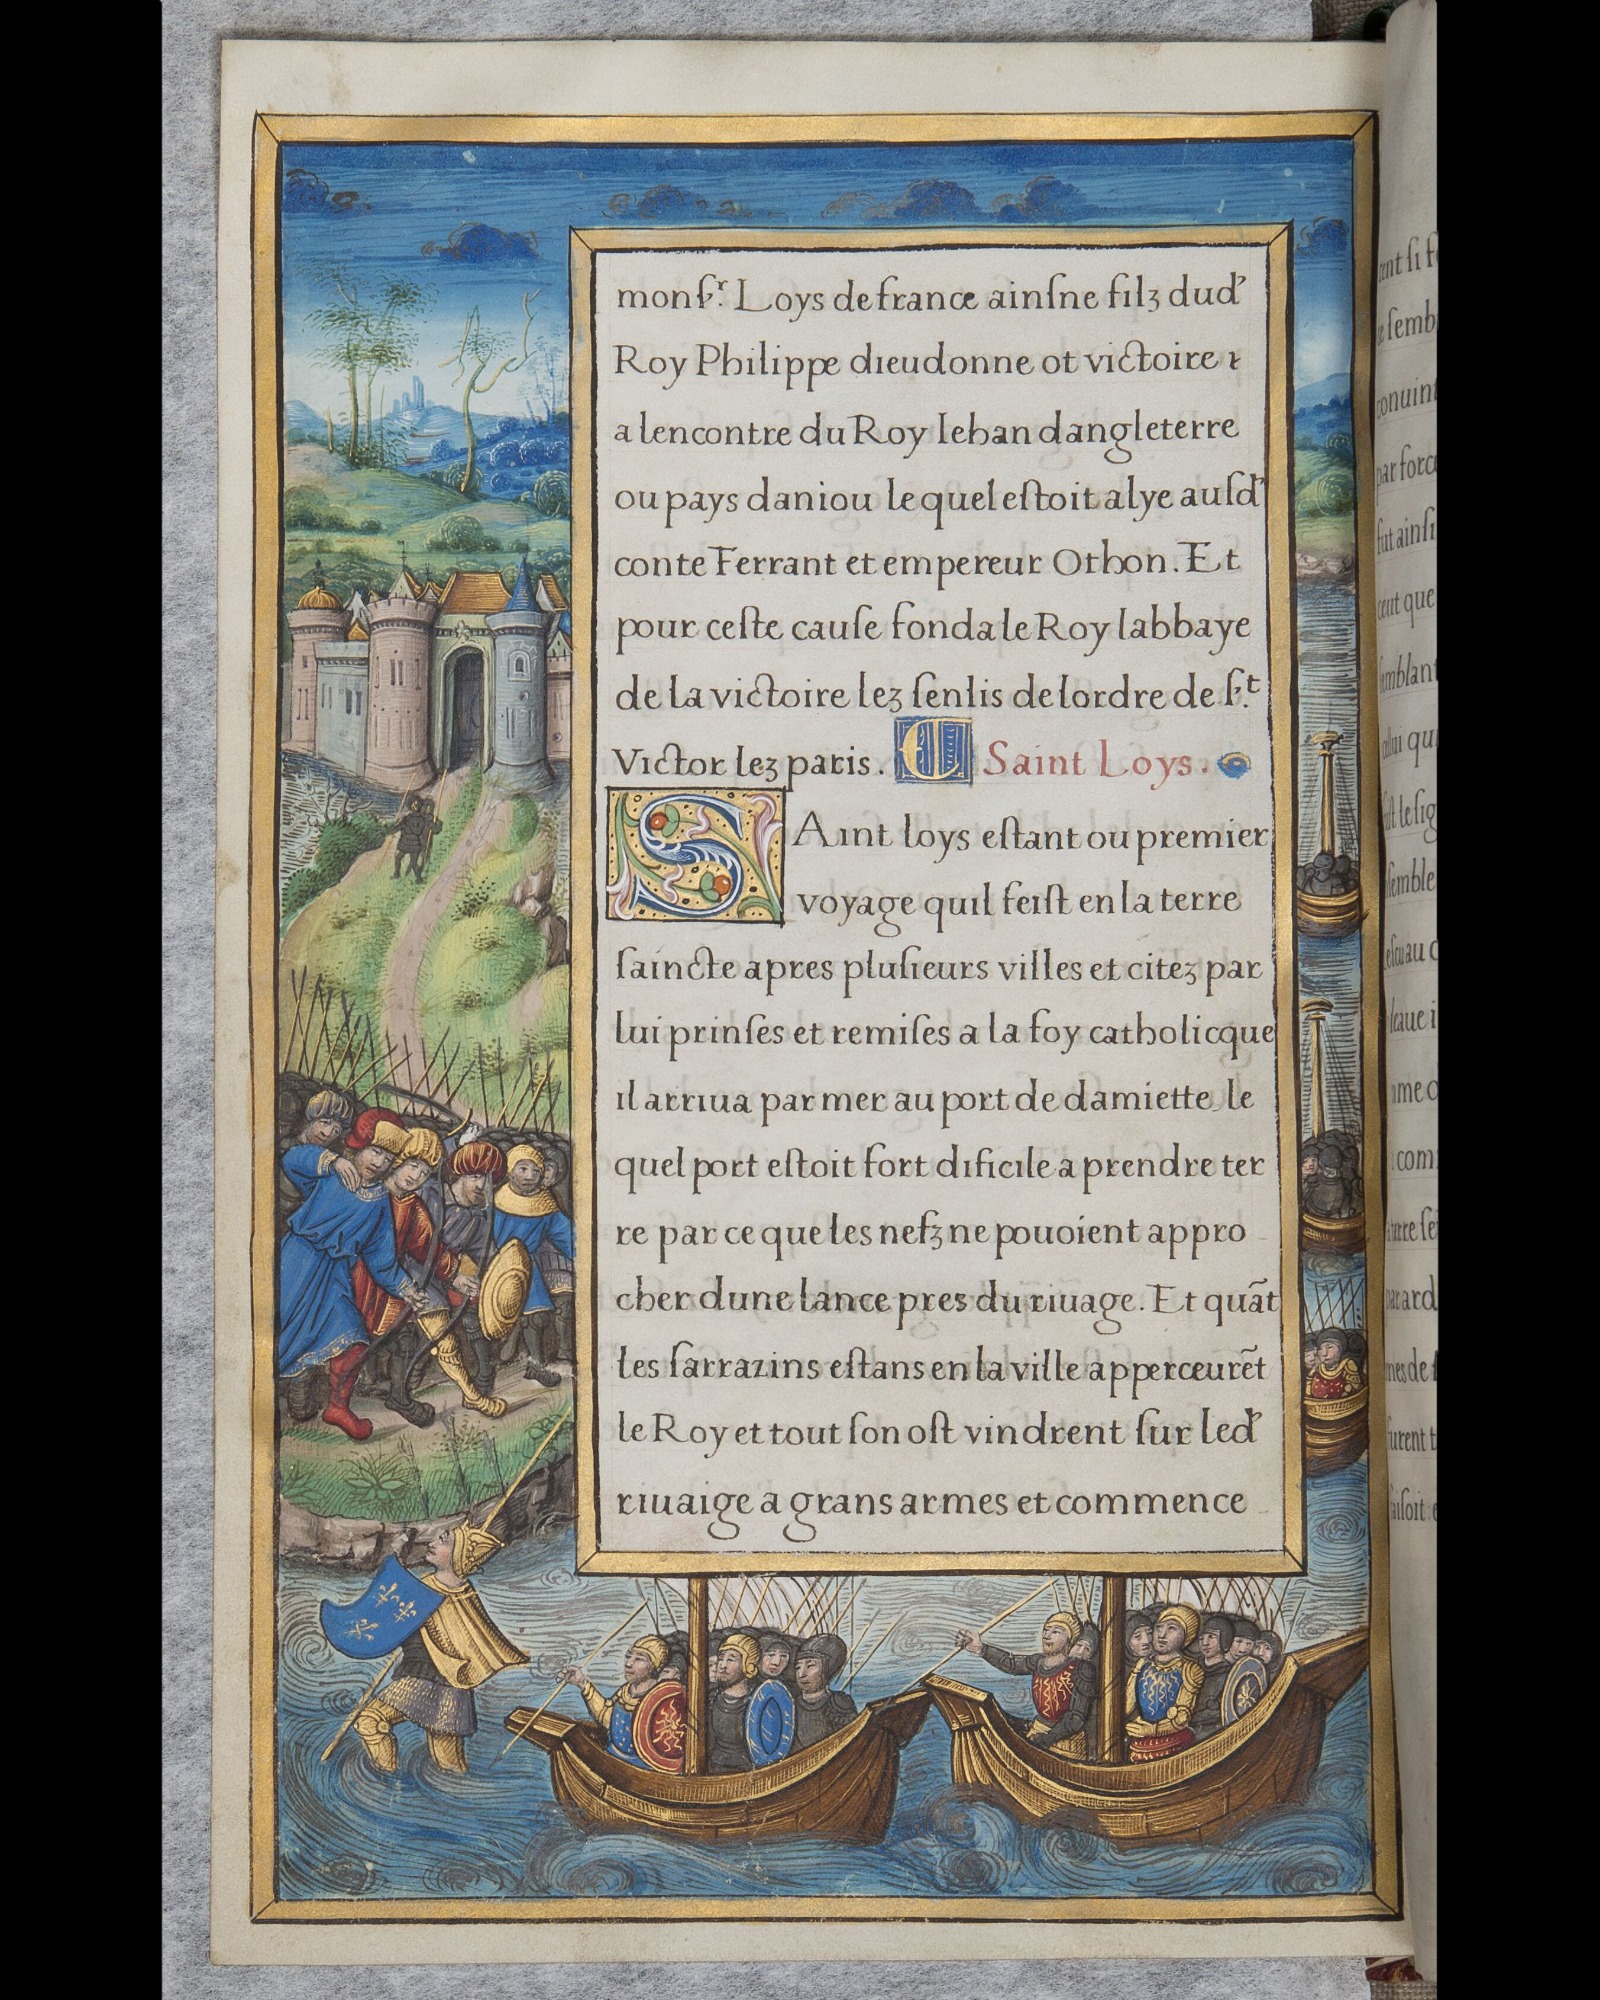 monſr. Loys de france ainſne filz dud'
Roy Philippe dieudonne ot victoire ⁊
a lencontre du Roy Iehan dangleterre
ou pays daniou lequel eſtoit alye auſd'
conte Ferrant et empereur Othon. Et
pour ceſte cauſe fonda le Roy labbaye
de la victoire lez ſenlis de lordre de ſt.
Victor lez paris. Saint Loys.
SAint loys eſtant ou premier
voyage quil feiſt en la terre
ſaincte apres pluſieurs villes et citez par
lui prinſes et remiſes a la foy catholicque
il arriua par mer au port de damiette le
quel port eſtoit fort dificile a prendre ter
re par ce que les nefz ne pouoient appro
cher dune lance pres du riuage. Et quãt
les ſarrazins eſtans en la ville apperceurẽt
le Roy et tout ſon oſt vindrent ſur led'
riuaige a grans armes et commence